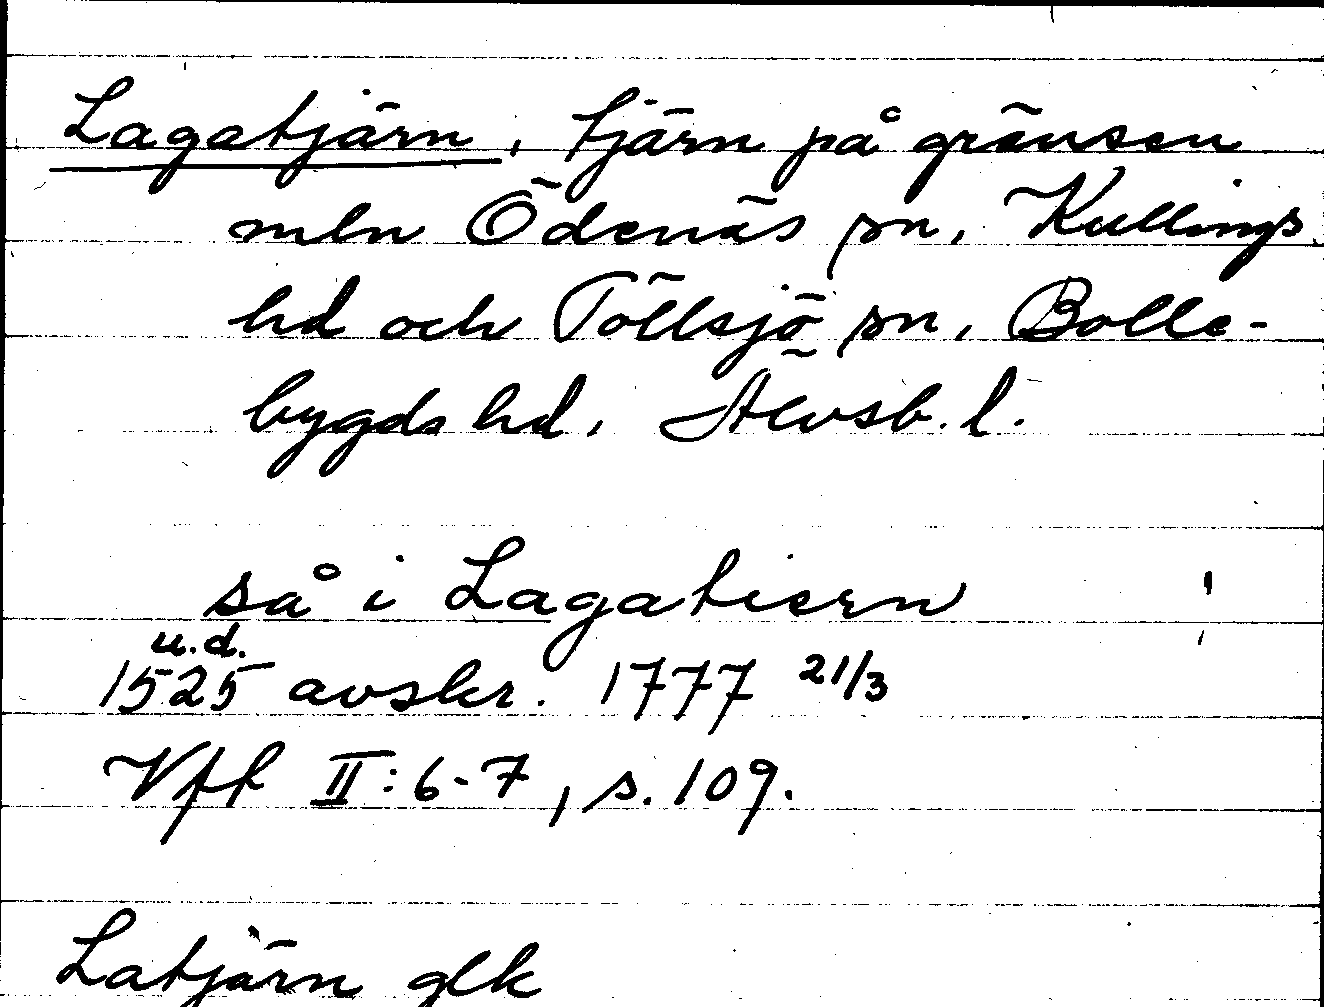 Lagatjärn, tjärn på gränsen
mln Ödenäs sn, Kullings
hd och Töllsjö sn, Bolle-
bygds hd, Älvsb. l.
så i Lagatiern
u.d.
1525 avskr. 1777 21/3
Vff II: 6-7, s. 109.
Latjärn glk